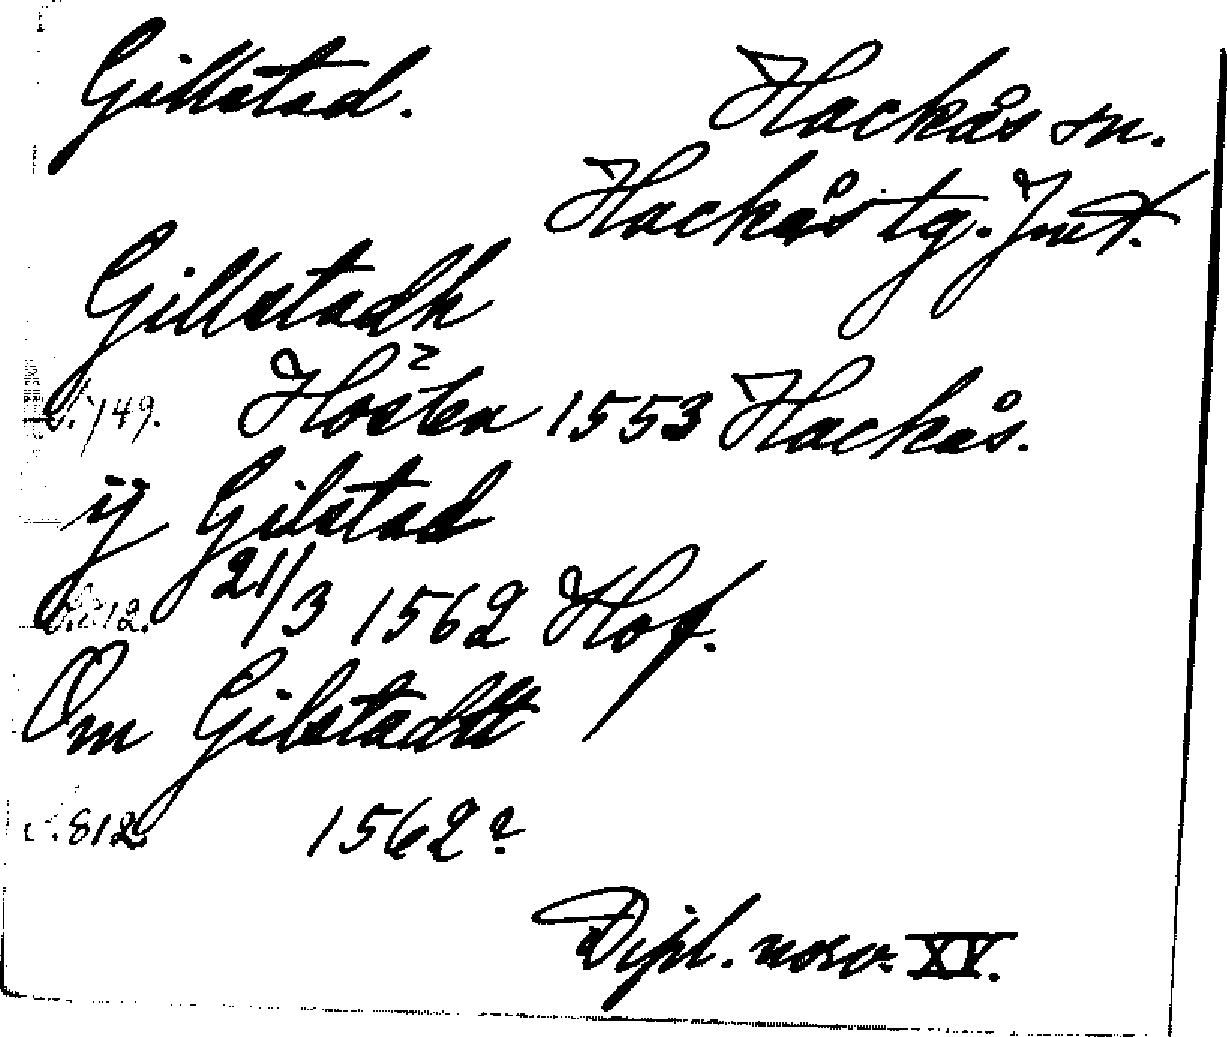 Gillstad.
Hackås sn.
Hackås tg. Jmt.
Gillstadh
S. 749. Hösten 1553 Hackås.
ij Gilstad
S. 812. 21/3 1562 Hof.
Om Gilstadtt
S. 812. 1562?
Dipl. norv. XV.